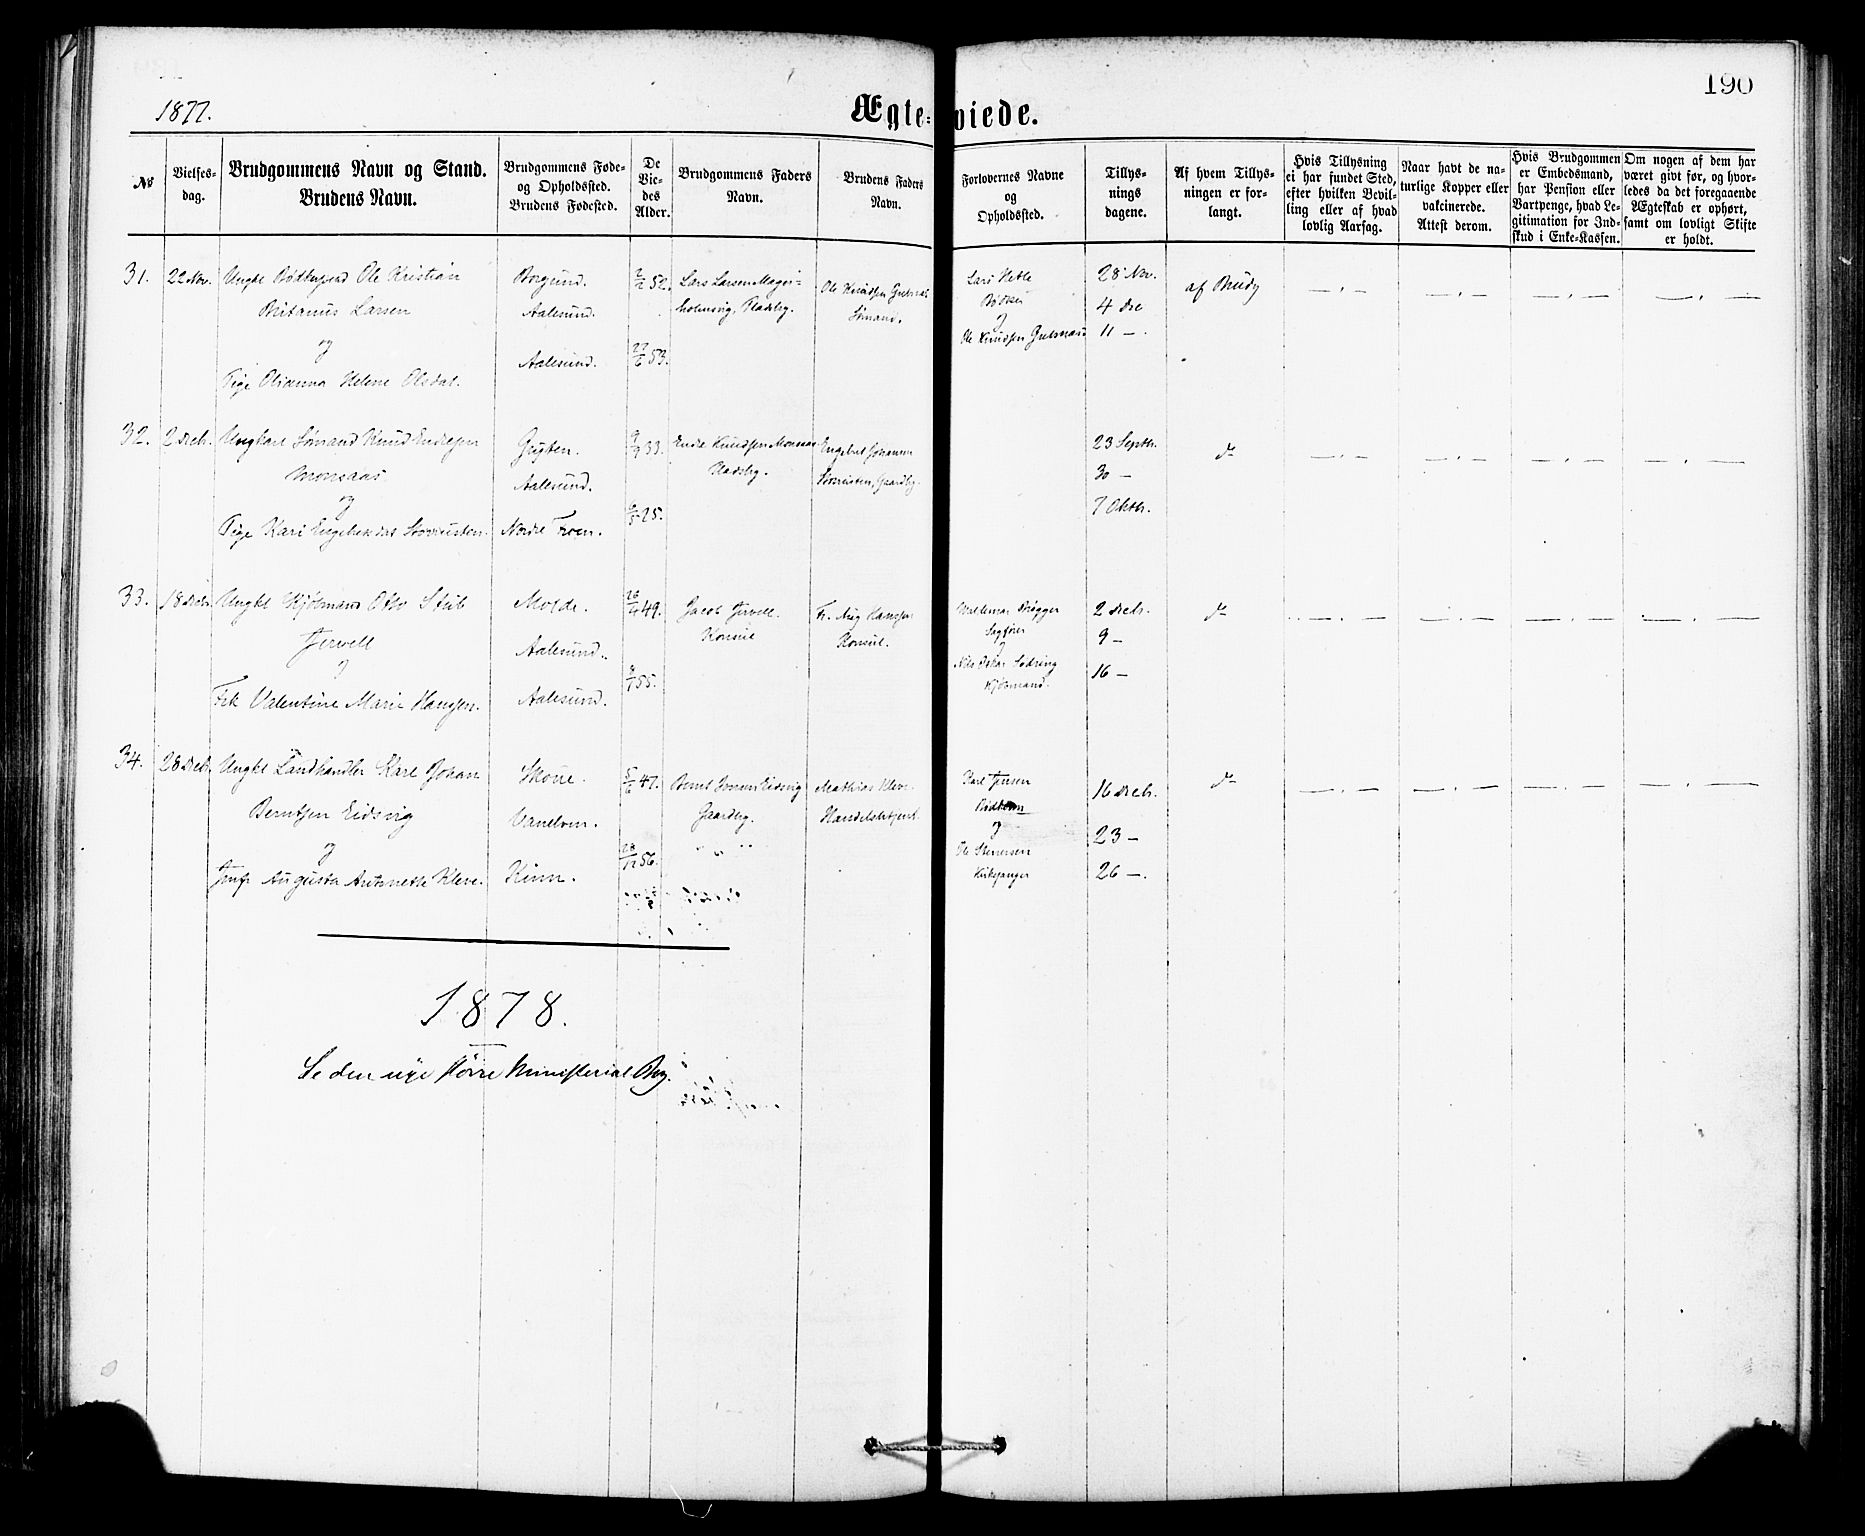 190
1877.
Ægte-viede.
No
Vielses-
dag.
Brudgommens Navn og Stand.
Brudens Navn.
Brudgommens Føde-
og Opholdssted.
Brudens Fødested.
De
Vie-
des
Alder.
Brudgommens Faders
Navn.
Brudens Faders
Navn.
Forlovernes Navne
og
Opholdssted.
Tillys-
nings
dagene.
Af hvem Tillys-
ningen er for-
langt.
Hvis Tillysning
ei har fundet Sted,
efter hvilken Bevil-
ling eller af hvad
lovlig Aarsag.
Naar havt de na-
turlige Kopper eller
vaksinerede.
Attest derom.
Hvis Brudgommen
er Embedsmand,
har Pension eller
Vartpenge, hvad Le-
gitimation for Ind-
skud i Enke-Kassen.
Om nogen af dem har
været gift før, og hvor-
ledes da det foregaaende
Ægteskab er ophørt,
samt om lovligt Skifte
er holdt.
31.
22 Nov.
Ole Kristian
Larsen
og
Pige Olianna Helene Olsdat.
Borgund.
Aalesund.
Aalesund.
52.
53.
Lars Larsen
Ole Knudsen
Sømand.
Bødker
og
Ole Knudsen
28 Nov.
4 Dec
11 —.
af Brudg
32.
2 Decb.
Ungkarl Sømand Knud Endresen
Monsaas
og
Pige Kari
Aalesund.
Nordre Fron.
33.
25.
Knudsen
Pladsbg.
Engebret Johansen
Gaardbg.
23 Septb.
30 —
7 Oktbr.
do
33.
18 Decb.
Ungkl Kjøbmand Otto Stub
Jervell
og
Frk Valentine Marie Hanssen.
Molde.
Aalesund.
Aalesund.
49.
55.
Jacob Jervell.
Konsul
Fr. Aug Hanssen
Konsul.
Sagfører
og
Nils
Kjøbmand.
2 Decb.
9 —
16 —
do
34.
28 Decb.
Ungkl Landhandler Karl Johan
Berntsen Eidsvig
og
Jmfr Augusta Antonette Kleve.
Vanelven.
Kinn.
47.
28/12 56.
Bernt Eidsvig
Gaardbg.
Mathias Kleve.
Handelsbetjent.
Karl Jensen
og
Ole Stenersen
Kirkesanger
16 Decb.
23 —
26 —.
do
1878.
Se den nye større Ministerial Bog.